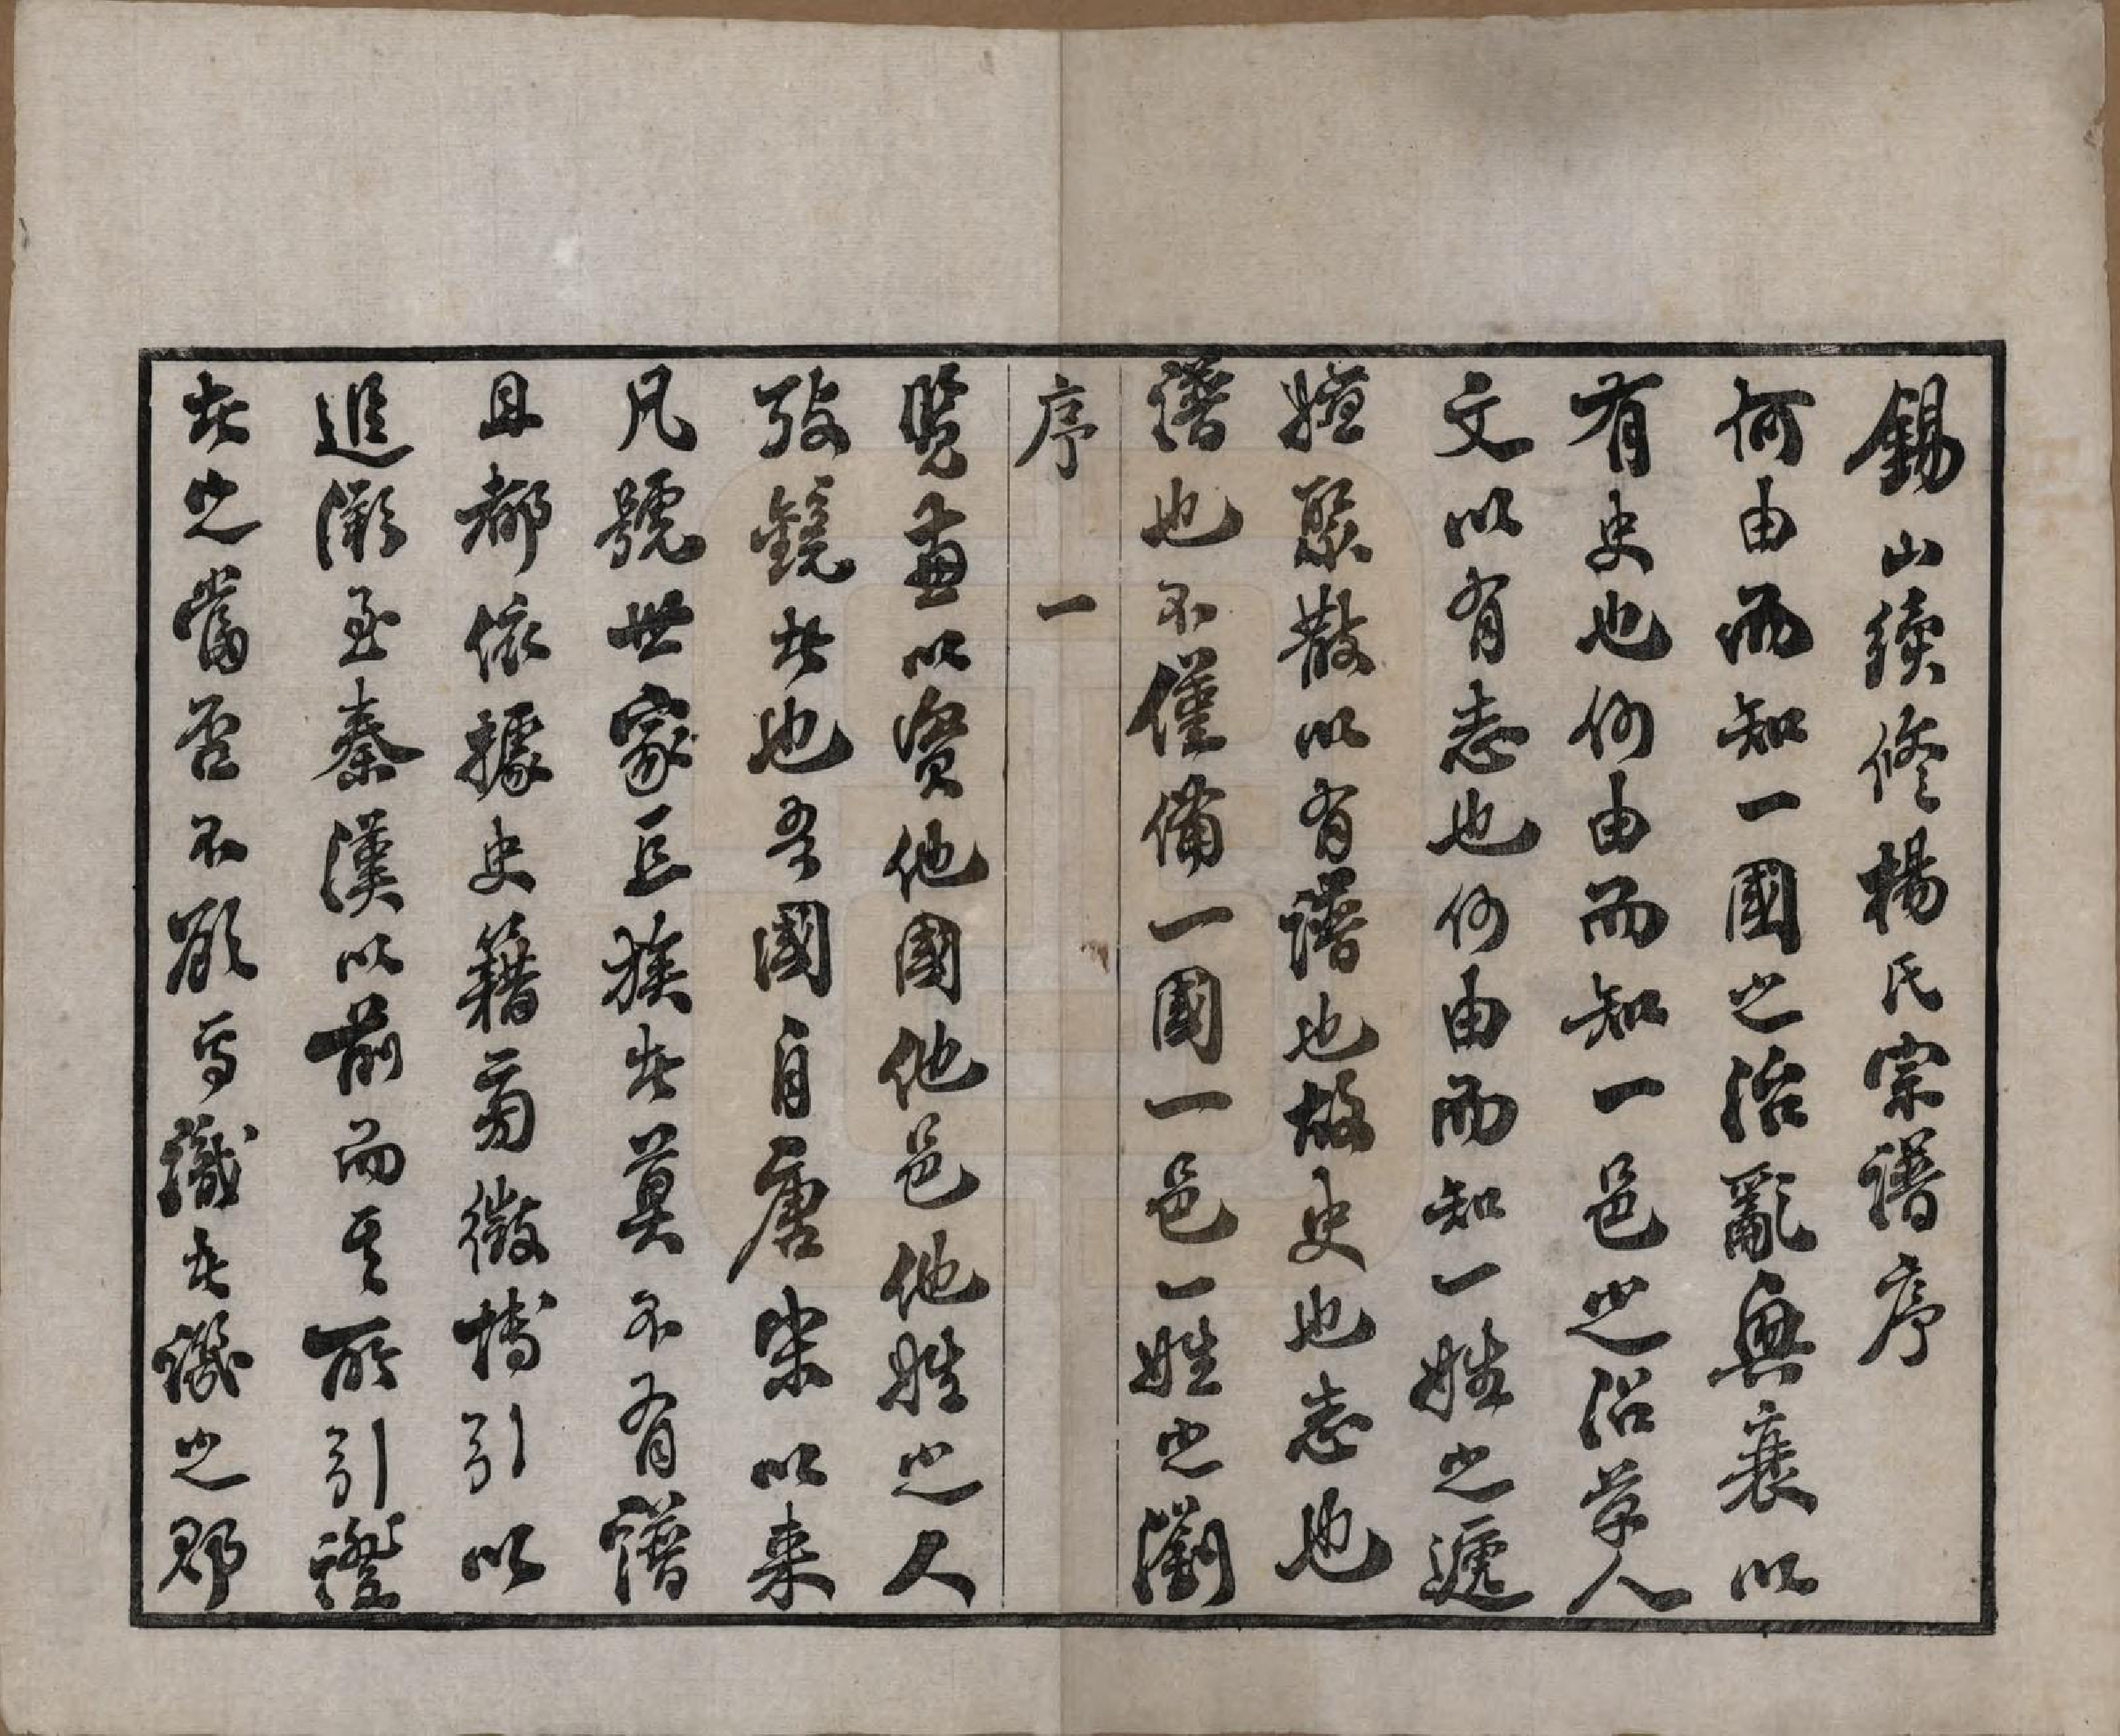 錫山續修楊氏宗譜序
何由而知一國之治亂興衰以
有史也何由而知一邑之沿革人
文以有志也何由而知一姓之遞
嬗聚散以有譜也故史也志也
譜也不僅備一國一邑一姓之瀏
序 一
覽兼以資他國他邑他姓之人
攷鏡者也吾國自唐宋以來
凡號世家巨族者莫不有譜
且都依據史籍旁徵博引以
追溯至秦漢以前而其所引證
者之當否不顧焉識者譏之鄙